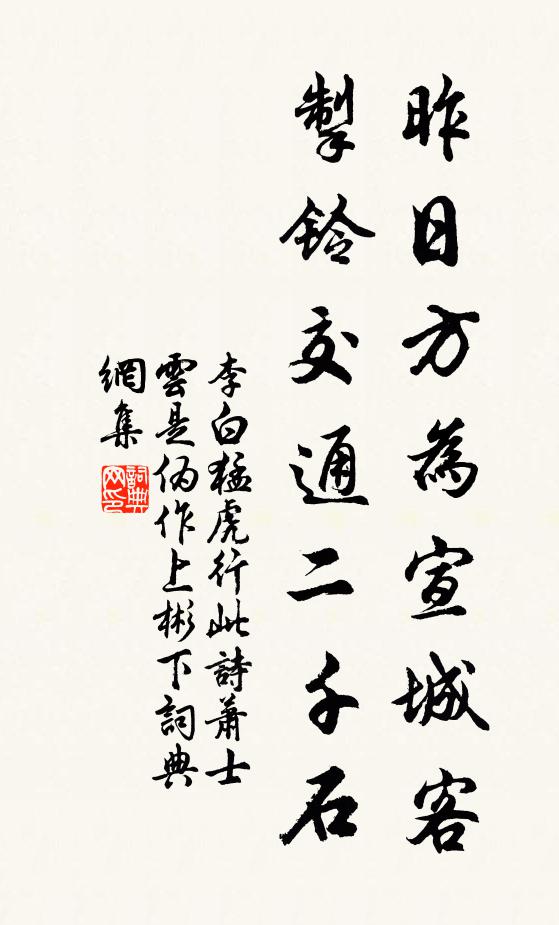 昨日方為宣城客
掣鈴交通二千石
李白猛虎行此詩蕭士
雲是偽作上彬下詞典
網集
詞典
网印